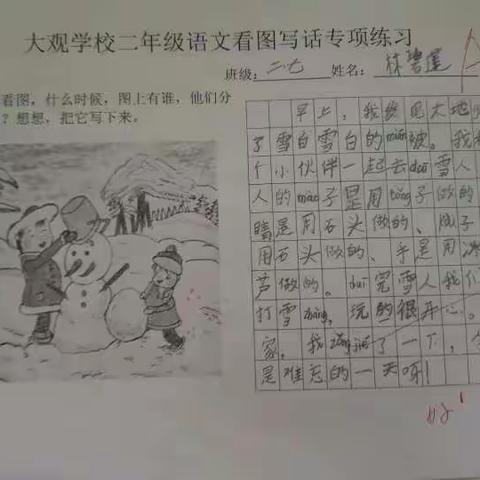 大观学校二年级语文看图写话专项练习
班级：二七 姓名：林碧莲
看图，什么时候，图上有谁，他们分
？想想，把它写下来。
早上，我发现大地
了雪白雪白的miān被。我
个小伙伴一起去duī雪人
人的mào子是用tǒng子做的
睛是用石头做的、子
用石头做的、手是用冰
芦做的。duī完雪人我们
打雪zhàng，玩的很开心。
家，我zǒng了一下，今
是难忘的一天呀！